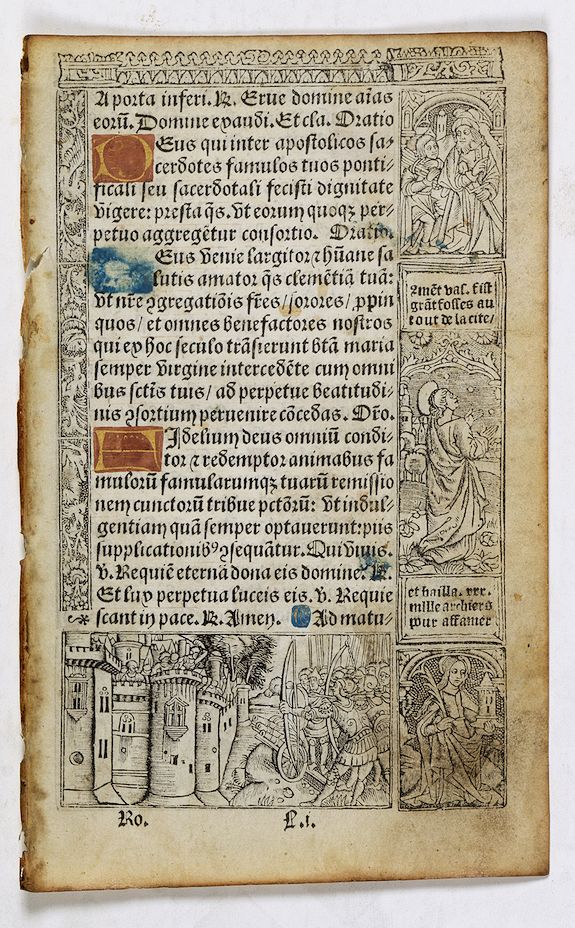 A porta inferi. ℟. Erue domine aīas
eorū. Domine exaudi. Et cla. Oratio
Deus qui inter apostolicos sa-
cerdotes famulos tuos ponti-
ficali seu sacerdotali fecisti dignitate
vigere: presta q̄s. vt eorum quoqꝫ per-
petuo aggregētur consortio. Oratio.
Deus venie largitor ⁊ hūane sa
lutis amator q̄s clemētiā tuā:
vt nr̄e ꝯgregatiōis fr̄es/ sorores/ ꝓpin
quos/ et omnes benefactores nostros
qui ex hoc seculo trāsierunt btā maria
semper virgine intercedēte cum omni
bus sctīs tuis/ ad perpetue beatitudi-
nis ꝯsortium peruenire cōcedas. Or̄o.
Fidelium deus omniū condi-
tor ⁊ redemptor animabus fa
mulorū famularumqꝫ tuarū remissio
nem cunctorū tribue pctōrū: vt indul-
gentiam quā semper optauerunt: piis
supplicationibꝰ ꝯsequātur. Qui viuis.
v. Requiē eternā dona eis domine. ℟.
Et lux perpetua luceis eis. v. Requie
scant in pace. ℟. Amen. Ad matu-
Ro. L.i.
fist
grāt fosses au
tout de la cite/
et bailla. xxx.
mille archiers
pour affamer